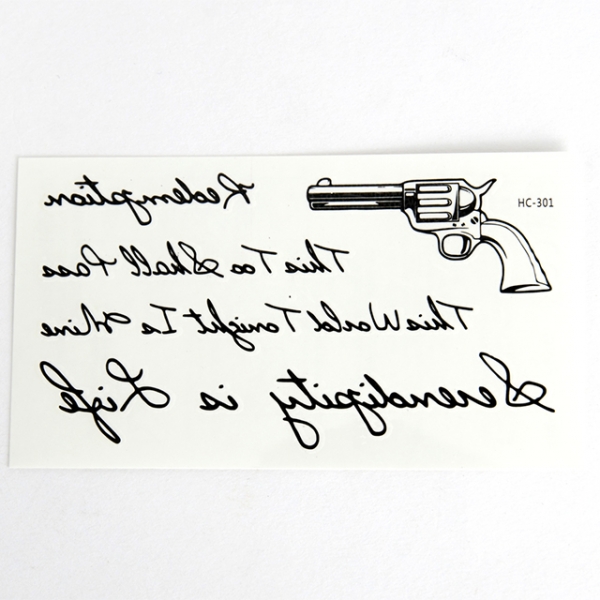 Redemption
HC-301
This Too Shall Pass
This World Tonight Is Mine
Serendipity is Life